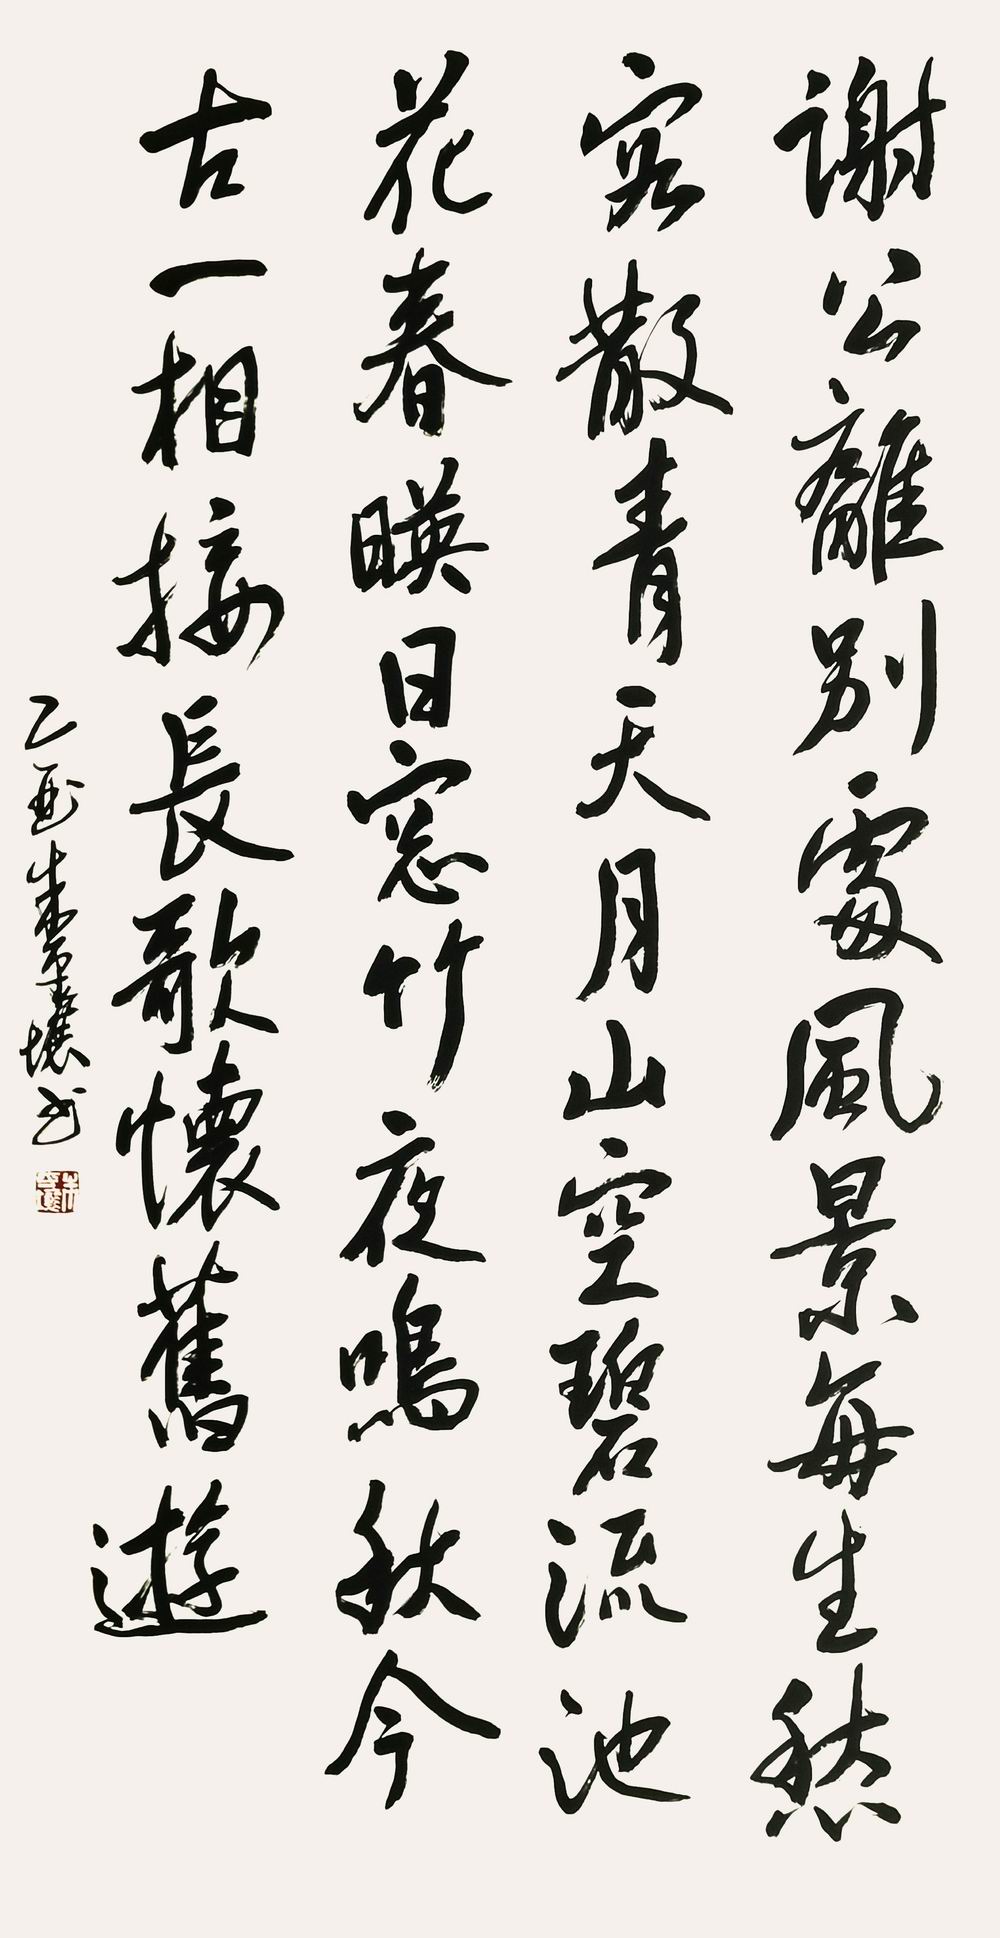 謝公離別處風景每生愁
客散青天月山空碧流池
花春暎日窓竹夜鳴秋今
古一相接長歌懷舊遊
乙酉朱學壤書